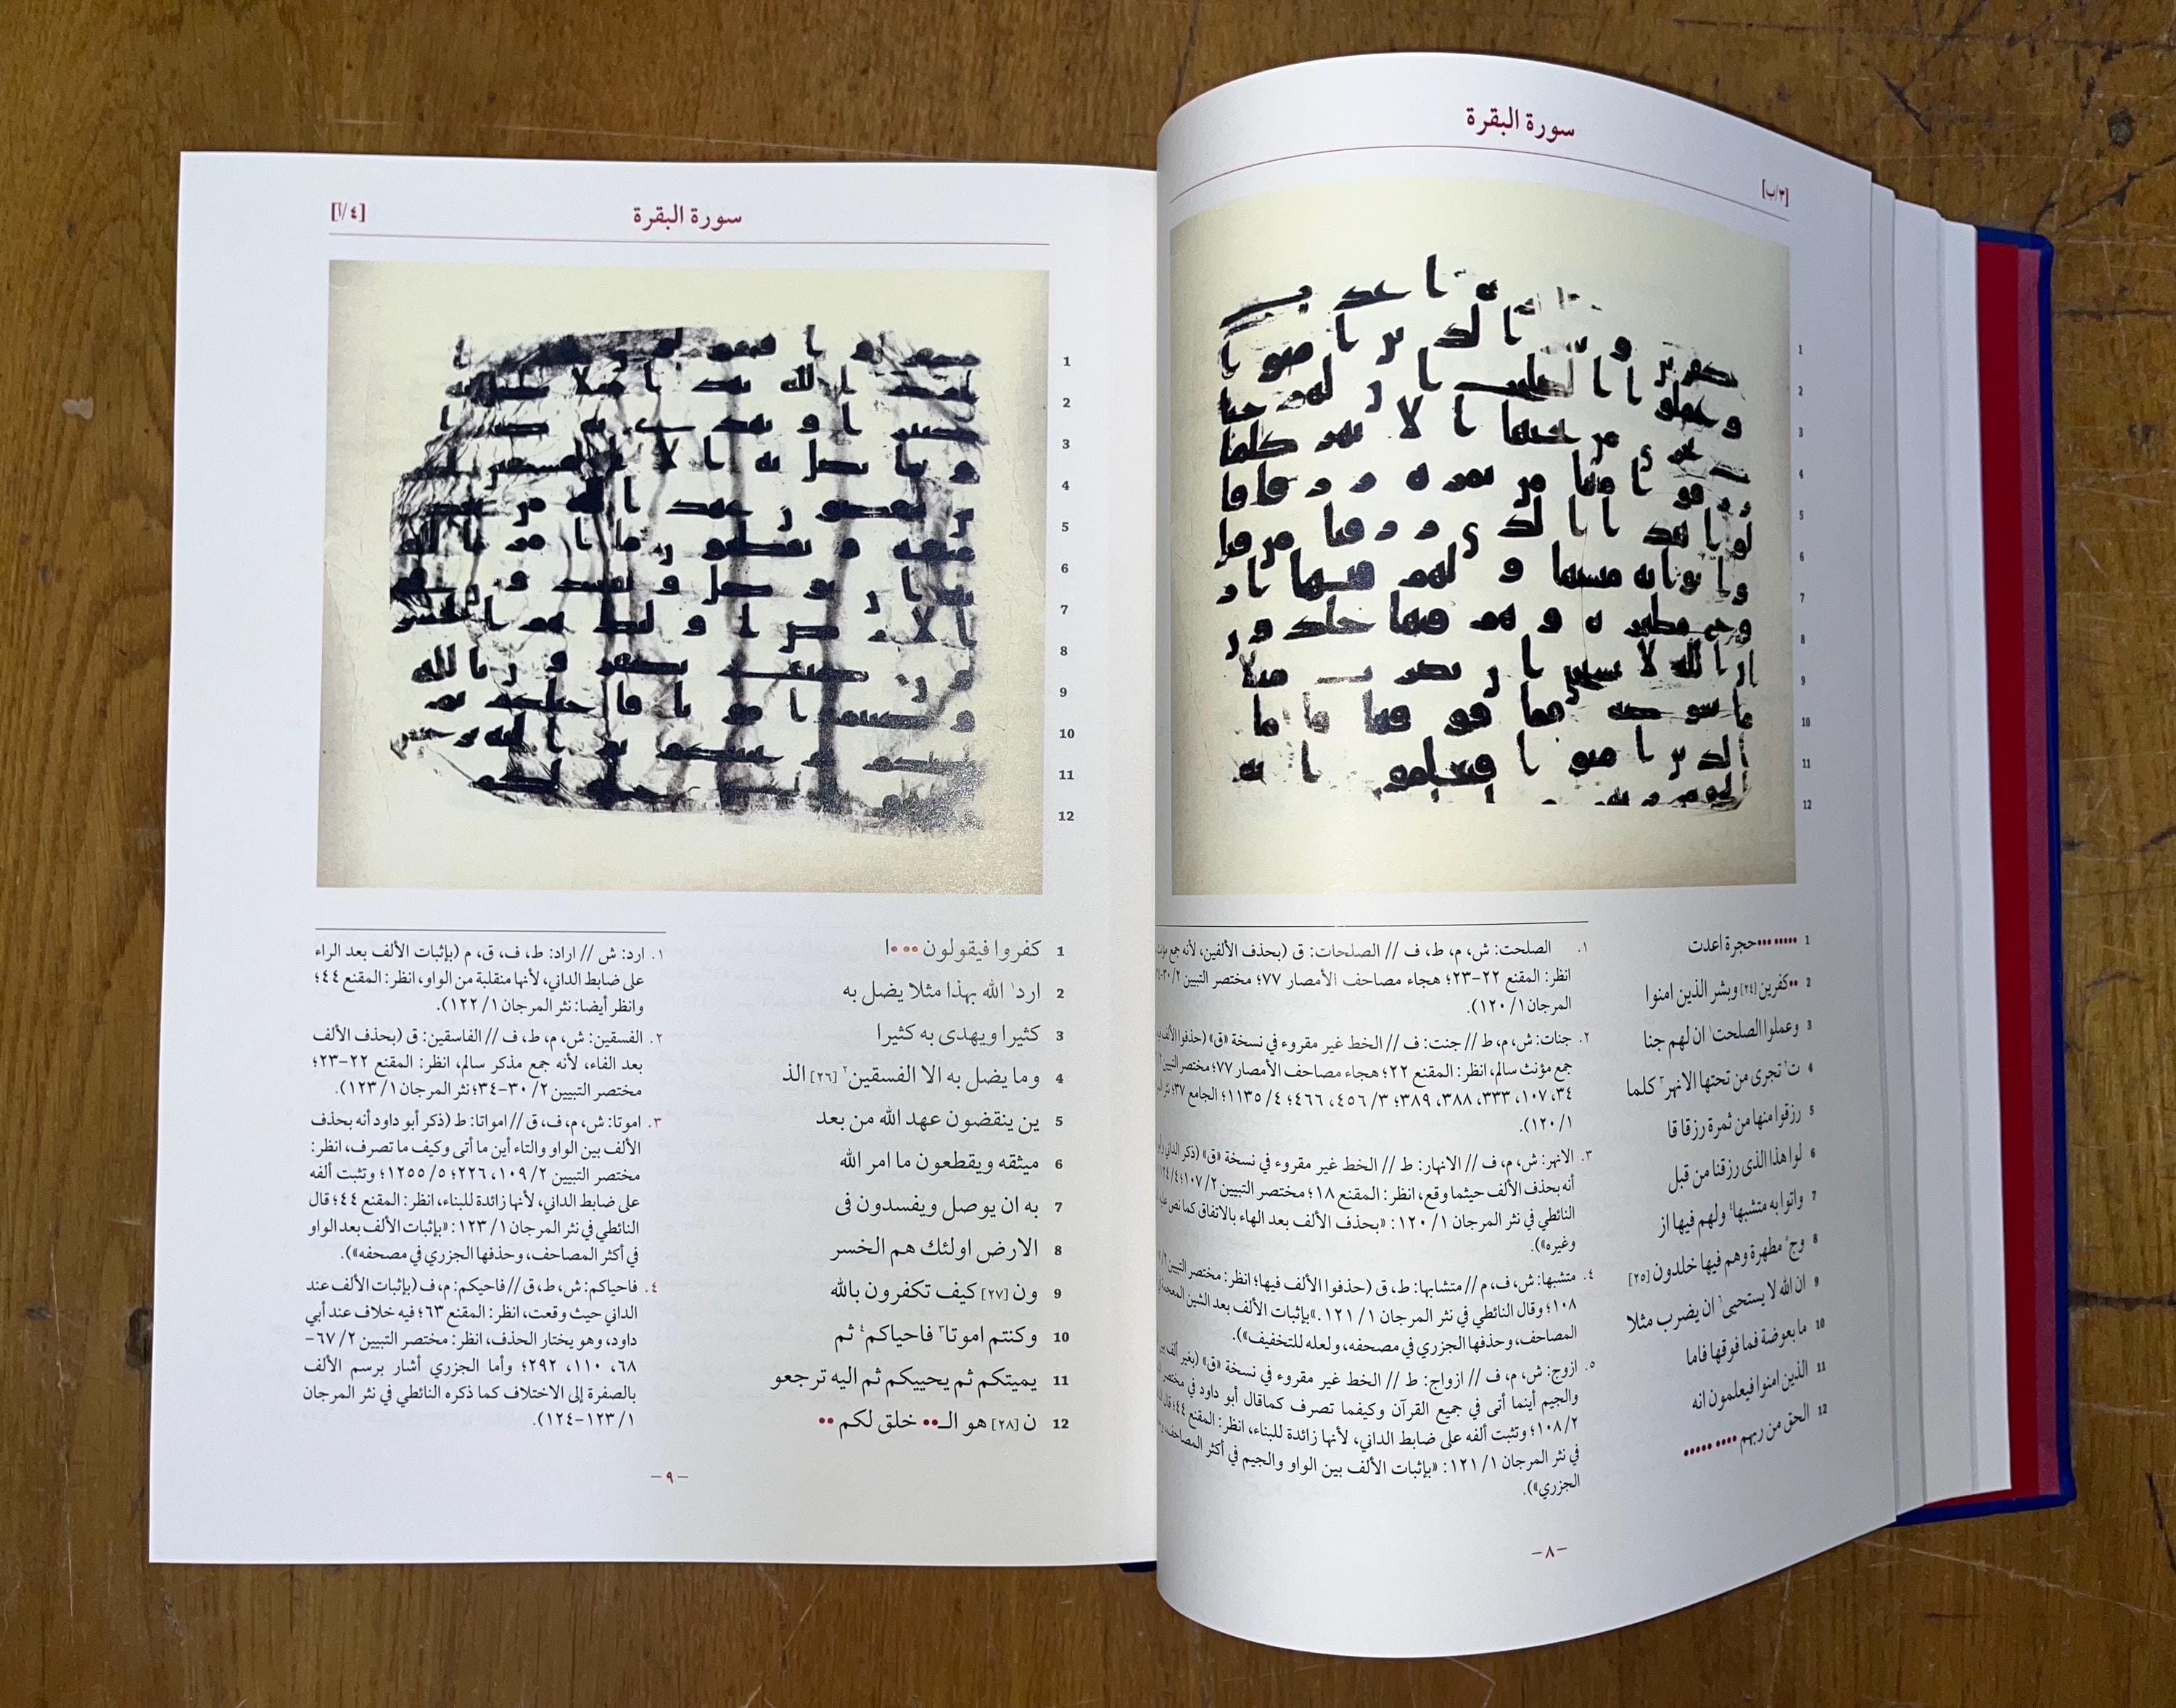 سورة البقرة
[٣/ب]
1 •••••••• حجرة اعدت
2 ••كفرين [٢٤] وبشر الذين امنوا
3 وعملوا الصلحت١ ان لهم جنا
4 ت٢ تجرى من تحتها الانهر٣ كلما
5 رزقوا منها من ثمرة رزقا قا
6 لوا هذا الذى رزقنا من قبل
7 واتوا به متشبها٤ ولهم فيها از
8 وج٥ مطهرة وهم فيها خلدون [٢٥]
9 ان الله لا يستحيى٦ ان يضرب مثلا
10 ما بعوضة فما فوقها فاما
11 الذين امنوا فيعلمون انه
12 الحق من ربهم •••• •••••
١. الصلحت: ش، م، ط، ف // الصلحات: ق (بحذف الألفين، لأنه جمع
انظر: المقنع ٢٢-٢٣؛ هجاء مصاحف الأمصار ٧٧؛ مختصر التبيين
المرجان ١/ ١٢٠).
٢. جنات: ش، م، ط // جنت: ف // الخط غير مقروء في نسخة «ق» (حذفوا
جمع مؤنث سالم، انظر: المقنع ٢٢؛ هجاء مصاحف الأمصار ٧٧؛ مختصر
٣٤، ١٠٧، ٣٣٣، ٣٨٨، ٣٨٩؛ ٣/ ٤٥٦، ٤٦٦؛ ٤/ ١١٣٥؛ الجامع ٣٧؛
١/ ١٢٠).
٣. الانهر: ش، م، ف // الانهار: ط // الخط غير مقروء في نسخة «ق» (ذكر الداني
أنه بحذف الألف حيثما وقع، انظر: المقنع ١٨؛ مختصر التبيين ٢/ ١٠٧؛
النائطي في نثر المرجان ١/ ١٢٠: «بحذف الألف بعد الهاء بالاتفاق كما نص
وغيره»).
٤. متشبها: ش، ف، م // متشابها: ط، ق (حذفوا الألف فيها؛ انظر: مختصر التبيين
١٠٨؛ وقال النائطي في نثر المرجان ١/ ١٢١: «بإثبات الألف بعد الشين المعجمة
المصاحف، وحذفها الجزري في مصحفه، ولعله للتخفيف»).
٥. ازوج: ش، م، ف // ازواج: ط // الخط غير مقروء في نسخة «ق» (بغير ألف
والجيم أينما أتى في جميع القرآن وكيفما تصرف كما قال أبو داود في مختصر
٢/ ١٠٨؛ وتثبت ألفه على ضابط الداني، لأنها زائدة للبناء، انظر: المقنع ٤٤؛
في نثر المرجان ١/ ١٢١: «بإثبات الألف بين الواو والجيم في أكثر المصاحف،
الجزري»).
-٨-
سورة البقرة
[٤/آ]
1 كفروا فيقولون •••ا
2 ارد١ الله بهذا مثلا يضل به
3 كثيرا ويهدى به كثيرا
4 وما يضل به الا الفسقين٢ [٢٦] الذ
5 ين ينقضون عهد الله من بعد
6 ميثقه ويقطعون ما امر الله
7 به ان يوصل ويفسدون فى
8 الارض اولئك هم الخسر
9 ون [٢٧] كيف تكفرون بالله
10 وكنتم اموتا٣ فاحياكم٤ ثم
11 يميتكم ثم يحييكم ثم اليه ترجعو
12 ن [٢٨] هو الـ•• خلق لكم ••
١. ارد: ش // اراد: ط، ف، ق، م (بإثبات الألف بعد الراء
على ضابط الداني، لأنها منقلبة من الواو، انظر: المقنع ٤٤؛
وانظر أيضا: نثر المرجان ١/ ١٢٢).
٢. الفسقين: ش، م، ط، ف // الفاسقين: ق (بحذف الألف
بعد الفاء، لأنه جمع مذكر سالم، انظر: المقنع ٢٢-٢٣؛
مختصر التبيين ٢/ ٣٠-٣٤؛ نثر المرجان ١/ ١٢٣).
٣. اموتا: ش، م، ف، ق // امواتا: ط (ذكر أبو داود أنه بحذف
الألف بين الواو والتاء أين ما أتى وكيف ما تصرف، انظر:
مختصر التبيين ٢/ ١٠٩، ٢٢٦؛ ٥/ ١٢٥٥؛ وتثبت ألفه
على ضابط الداني، لأنها زائدة للبناء، انظر: المقنع ٤٤؛ قال
النائطي في نثر المرجان ١/ ١٢٣: «بإثبات الألف بعد الواو
في أكثر المصاحف، وحذفها الجزري في مصحفه»).
٤. فاحياكم: ش، ط، ق // فاحيكم: م، ف (بإثبات الألف عند
الداني حيث وقعت، انظر: المقنع ٦٣؛ فيه خلاف عند أبي
داود، وهو يختار الحذف، انظر: مختصر التبيين ٢/ ٦٧-
٦٨، ١١٠، ٢٩٢؛ وأما الجزري أشار برسم الألف
بالصفرة إلى الاختلاف كما ذكره النائطي في نثر المرجان
١/ ١٢٣-١٢٤).
-٩-